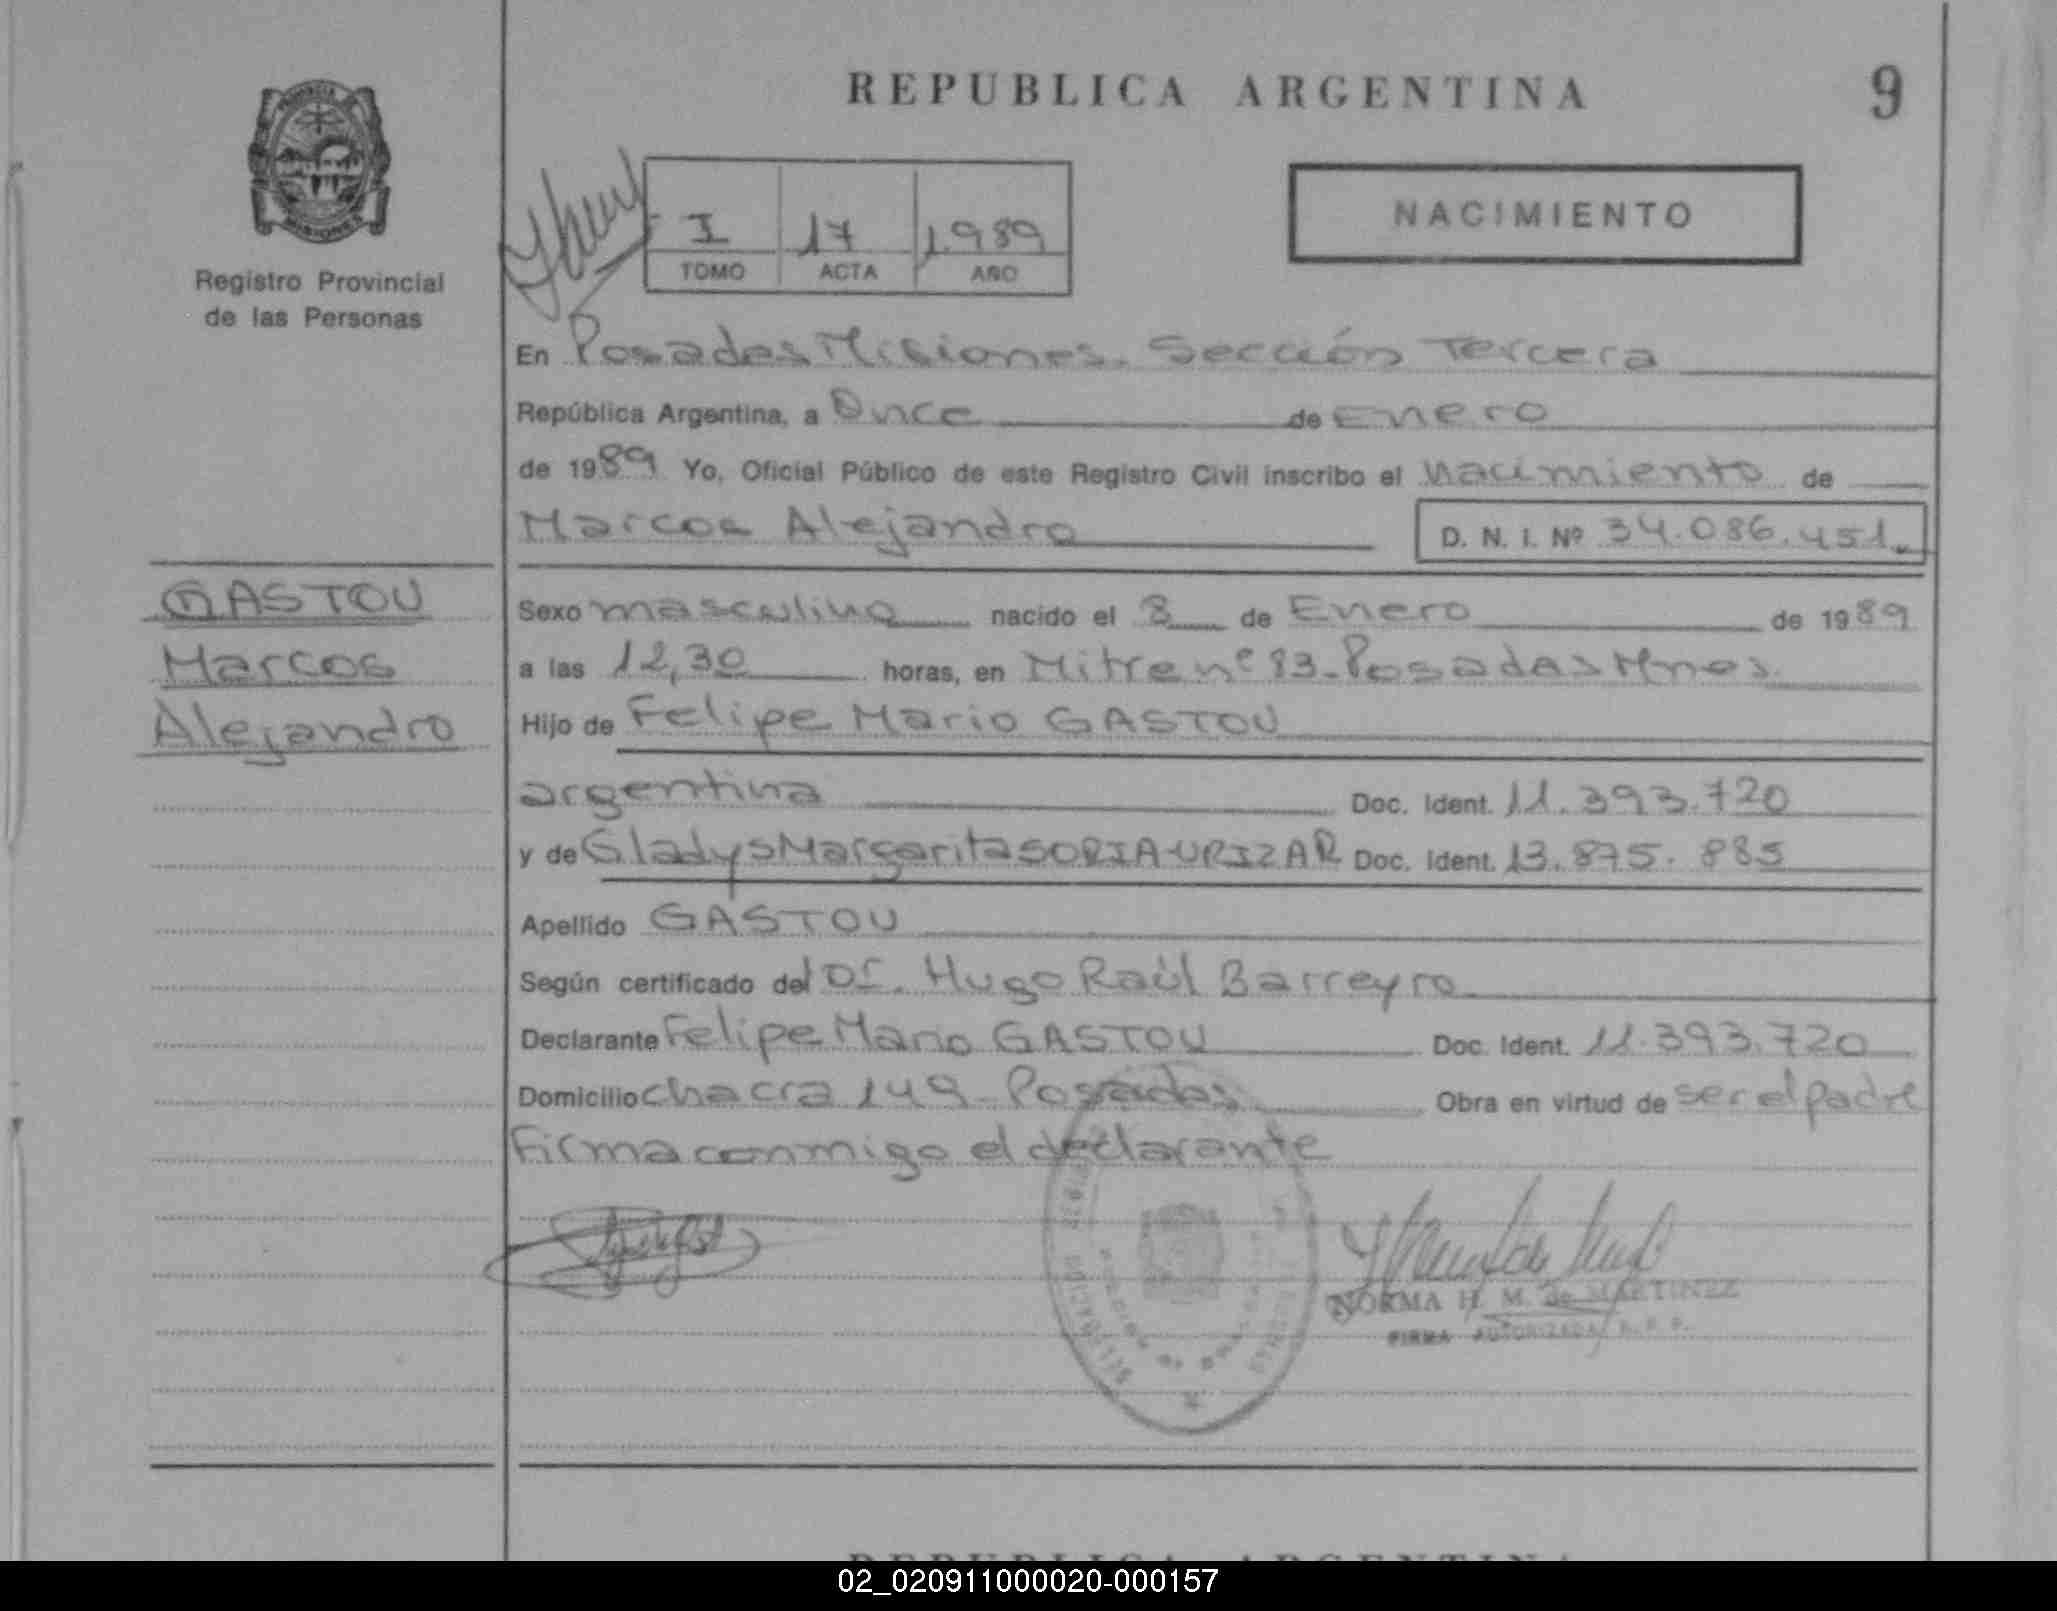 REPUBLICA ARGENTINA
9
PROVINCIA DE
MISIONES
Registro Provincial
de las Personas
I 17 1.989
TOMO ACTA AÑO
NACIMIENTO
En Posadas Misiones. Sección Tercera
República Argentina, a Once de Enero
de 1989 Yo, Oficial Público de este Registro Civil inscribo el nacimiento de
Marcos Alejandro D. N. I. Nº 34.086.451
GASTOU
Marcos
Alejandro
Sexo masculino nacido el 8 de Enero de 1989
a las 12,30 horas, en Mitre nº 83-Posadas Mnes.
Hijo de Felipe Mario GASTOU
argentina Doc. Ident. 11.393.720
y de Gladys Margarita SORIA URIZAR Doc. Ident. 13.875.885
Apellido GASTOU
Según certificado del Dr. Hugo Raúl Barreyro
Declarante Felipe Mario GASTOU Doc. Ident. 11.393.720
Domicilio chacra 149 - Posadas Obra en virtud de ser el padre
Firma conmigo el declarante
NORMA H. M. de MARTINEZ
FIRMA AUTORIZADA R. P. P.
REPUBLICA ARGENTINA
02_020911000020-000157